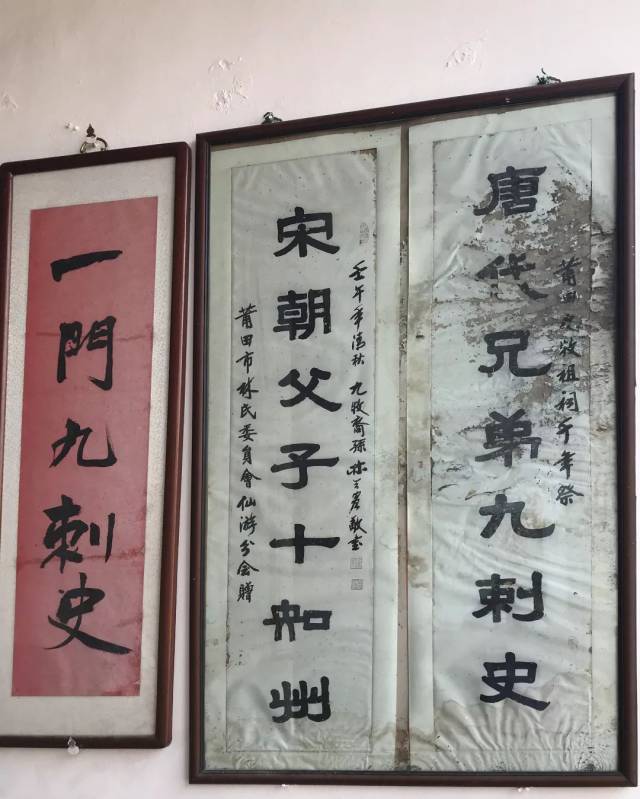 唐代兄弟九刺史
莆田九牧祖祠千年祭
宋朝父子十知州
壬午年清秋 九牧裔孫林敬書
莆田市林氏委員會仙游分会贈
一門九刺史